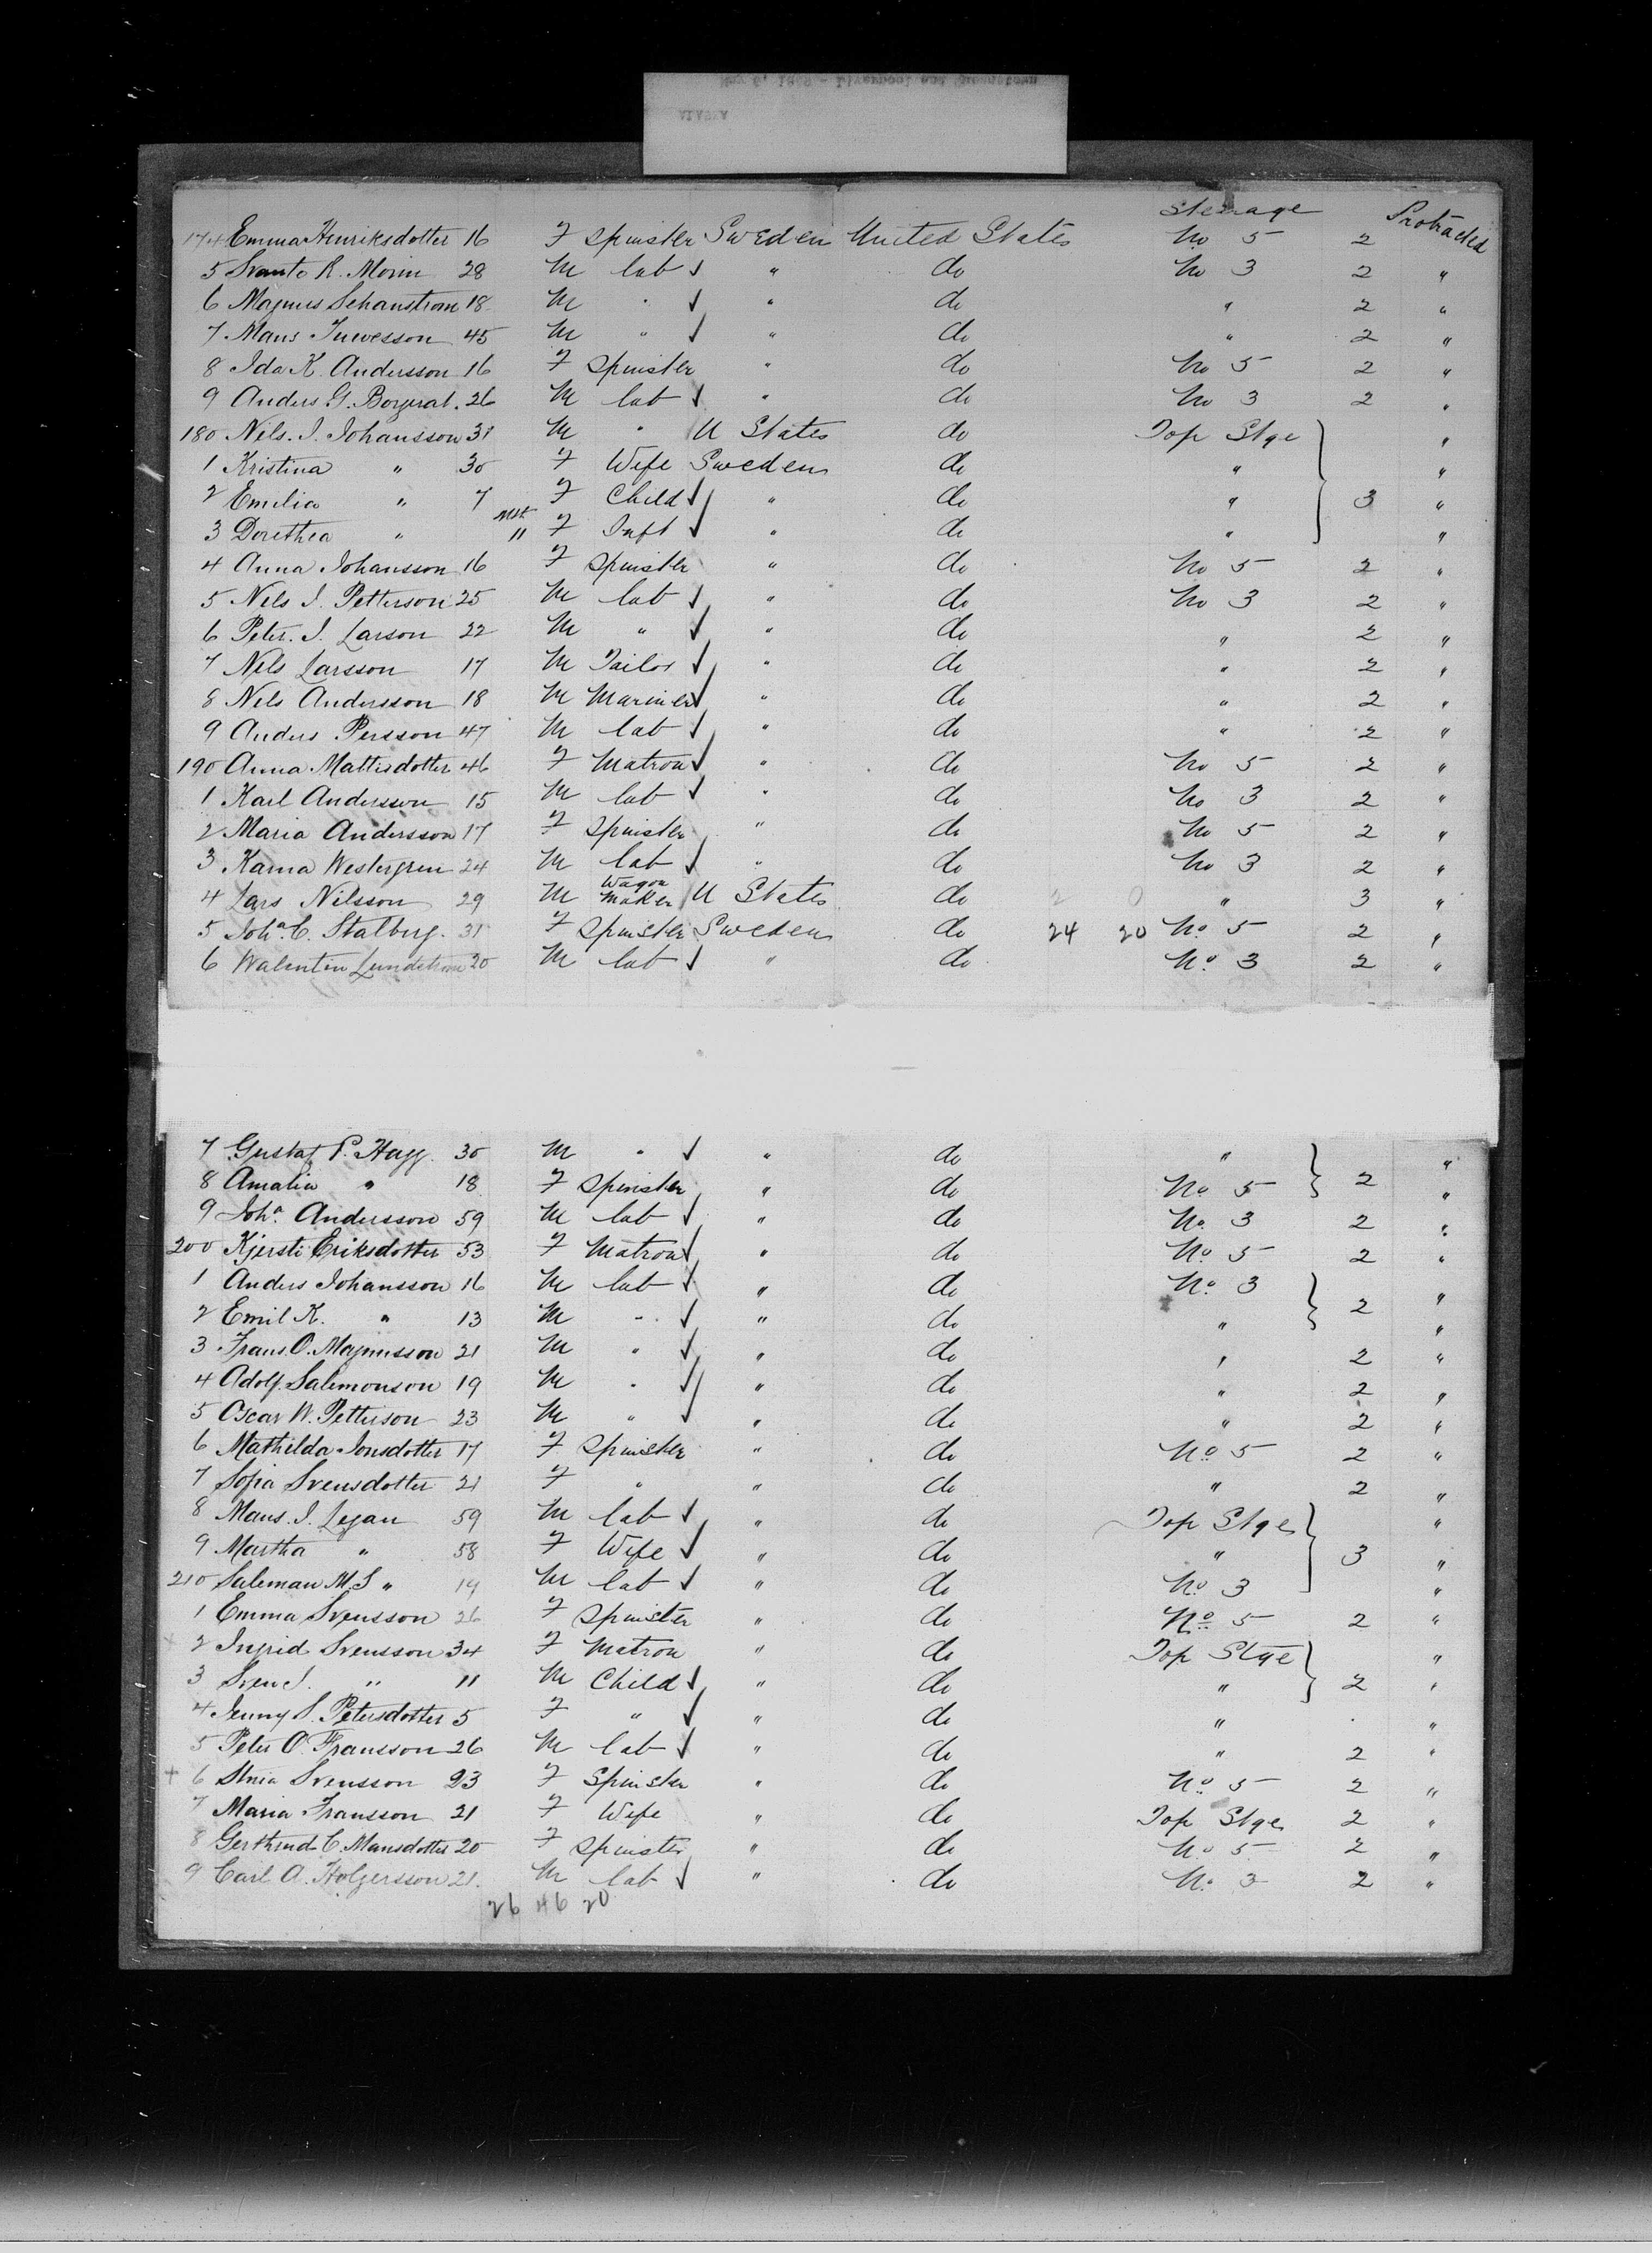 May 6, 1889 - Liverpool and Queenstown
ALASKA
Steerage
174 Emma Henriksdotter 16 F Spinster Sweden United States No 5 2 Protracted
5 Svante R. Morin 28 M lab ✓ " do No 3 2 "
6 Magnus Schanstrom 18 M " ✓ " do " 2 "
7 Mans Juwesson 45 M " ✓ " do " 2 "
8 Ida K. Andersson 16 F Spinster " do No 5 2 "
9 Anders G. 26 M lab ✓ " do No 3 2 "
180 Nels. J. Johansson 31 M " U States do Top Stge "
1 Kristina " 30 F Wife Sweden do " "
2 Emelia " 7 F Child ✓ " do " 3 "
3 Dorethea " Mth 11 F Inft ✓ " do " "
4 Anna Johansson 16 F Spinster " do No 5 2 "
5 Nels J. Petterson 25 M lab ✓ " do No 3 2 "
6 Peter. J. Larson 22 M " ✓ " do " 2 "
7 Nels Larsson 17 M Tailor ✓ " do " 2 "
8 Nels Andersson 18 M Mariner ✓ " do " 2 "
9 Anders Persson 47 M lab ✓ " do " 2 "
190 Anna Mattisdotter 46 F Matron ✓ " do No 5 2 "
1 Karl Andersson 15 M lab ✓ " do No 3 2 "
2 Maria Andersson 17 F Spinster " do No 5 2 "
3 Karna Westergren 24 M lab ✓ " do No 3 2 "
4 Lars Nilsson 29 M Wagon Maker U States do 2 0 " 3 "
5 Joha. C. Stalberg. 31 F Spinster Sweden do 24 20 No. 5 2 "
6 Walentin Lundstrom 20 M lab ✓ " do No. 3 2 "
7 Gustaf P. Hagg. 30 M " ✓ " do " "
8 Amalia " 18 F Spinster " do No. 5 2 "
9 Joha. Andersson 59 M lab ✓ " do No. 3 2 "
200 Kjersti Eriksdotter 53 F Matron ✓ " do No. 5 2 "
1 Anders Johansson 16 M lab ✓ " do No. 3 "
2 Emil K. " 13 M " ✓ " do " 2 "
3 Frans. O. Magnusson 21 M " ✓ " do " 2 "
4 Adolf. Salemonson 19 M " ✓ " do " 2 "
5 Oscar W. Petterson 23 M " ✓ " do " 2 "
6 Mathilda Jonsdotter 17 F Spinster " do No. 5 2 "
7 Sofia Svensdotter 21 F " " do " 2 "
8 Mans. J. Legan 59 M lab ✓ " do Top Stge "
9 Martha " 58 F Wife ✓ " do " 3 "
210 Saleman M. S " 19 M lab ✓ " do No. 3 "
1 Emma Svensson 26 F Spinster " do No. 5 2 "
2 Ingrid Svensson 34 F Matron " do Top Stge "
3 Sven J. " 11 M Child ✓ " do " 2 "
4 Jenny S. Petersdotter 5 F " ✓ " do " "
5 Peter O. Fransson 26 M lab ✓ " do " 2 "
+ 6 Stina Svensson 23 F Spinster " do No. 5 2 "
7 Maria Fransson 21 F Wife " do Top Stge 2 "
8 Gerthrud C. Mansdotter 20 F Spinster " do No. 5 2 "
9 Carl A. Holgersson 21. M lab ✓ " do No. 3 2 "
26 46 20